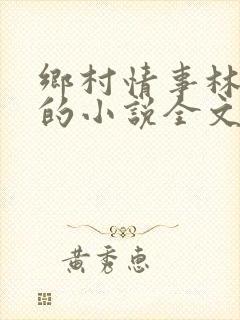 鄉村情事林
的小説全文
黃秀惠